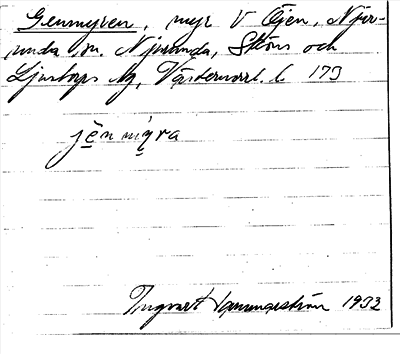 Genmyren, myr V Öjen, Njur-
unda sn. Njurunda, Sköns och
Ljustorps tg, Västernorrl. l. 173
jēn my̆ra
Ingvert Wennerström 1933